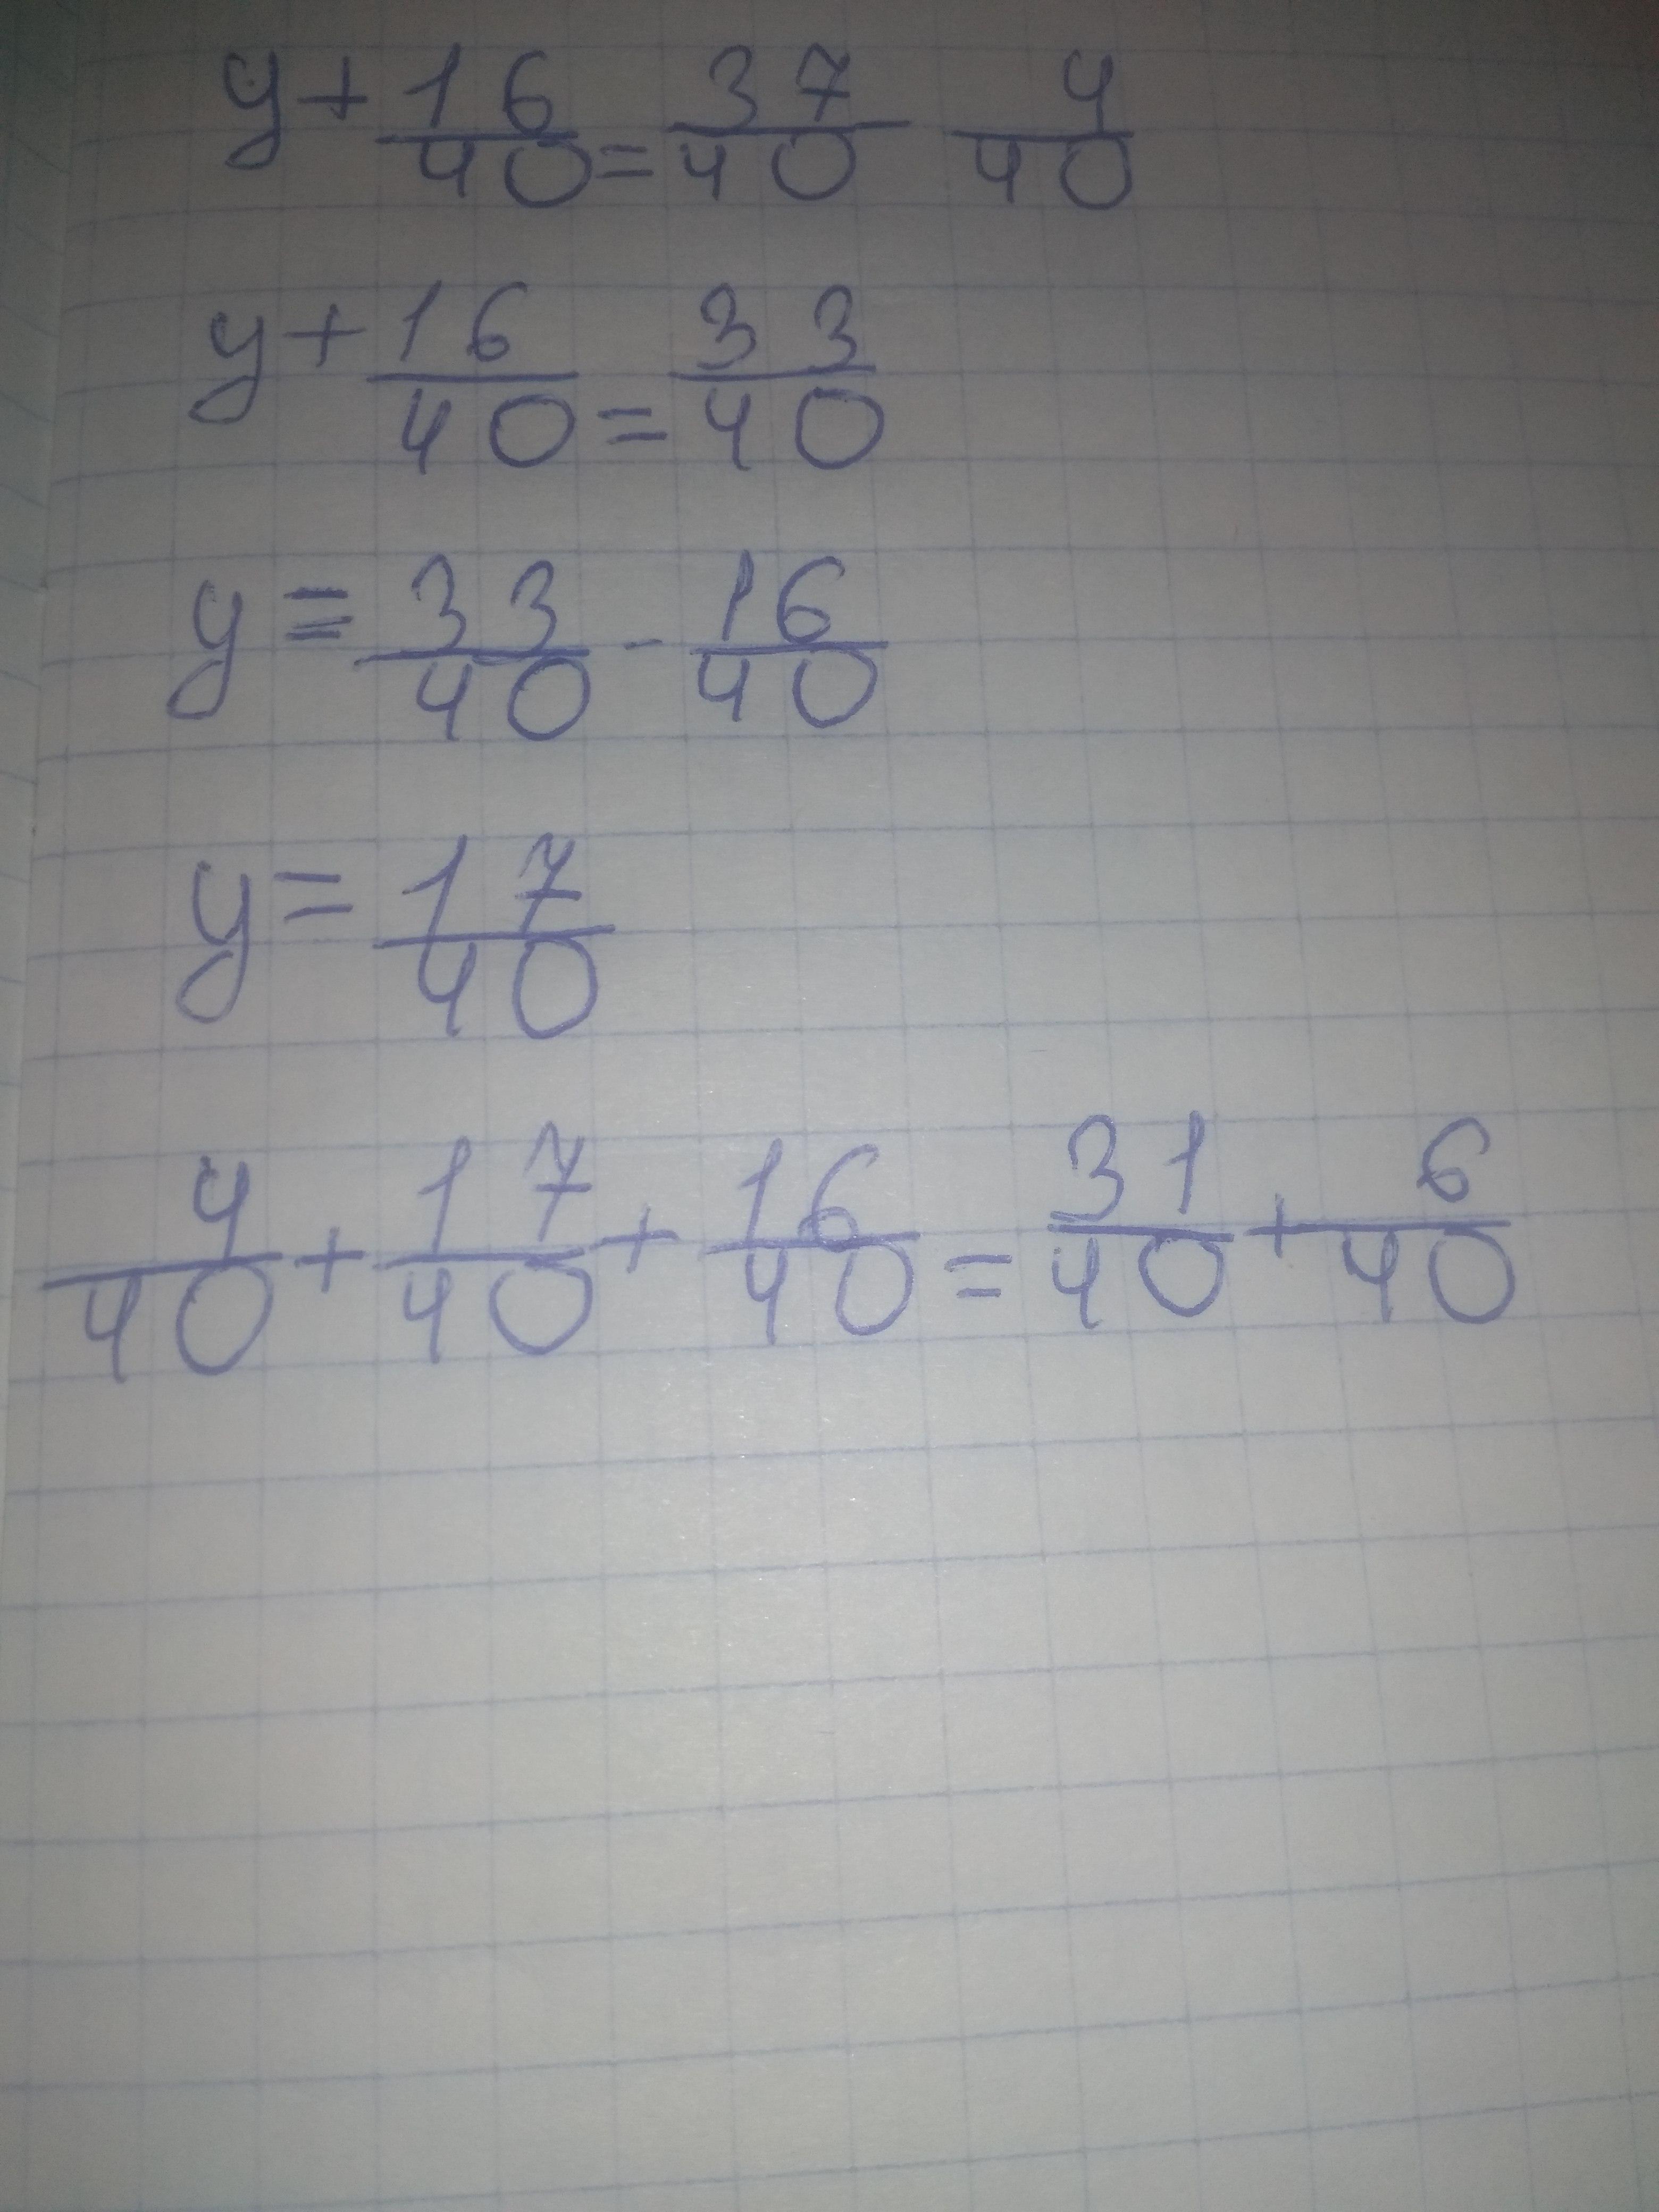 y + 16/40 = 37/40 4/40
y + 16/40 = 33/40
y = 33/40 - 16/40
y = 17/40
4/40 + 17/40 + 16/40 = 31/40 + 6/40